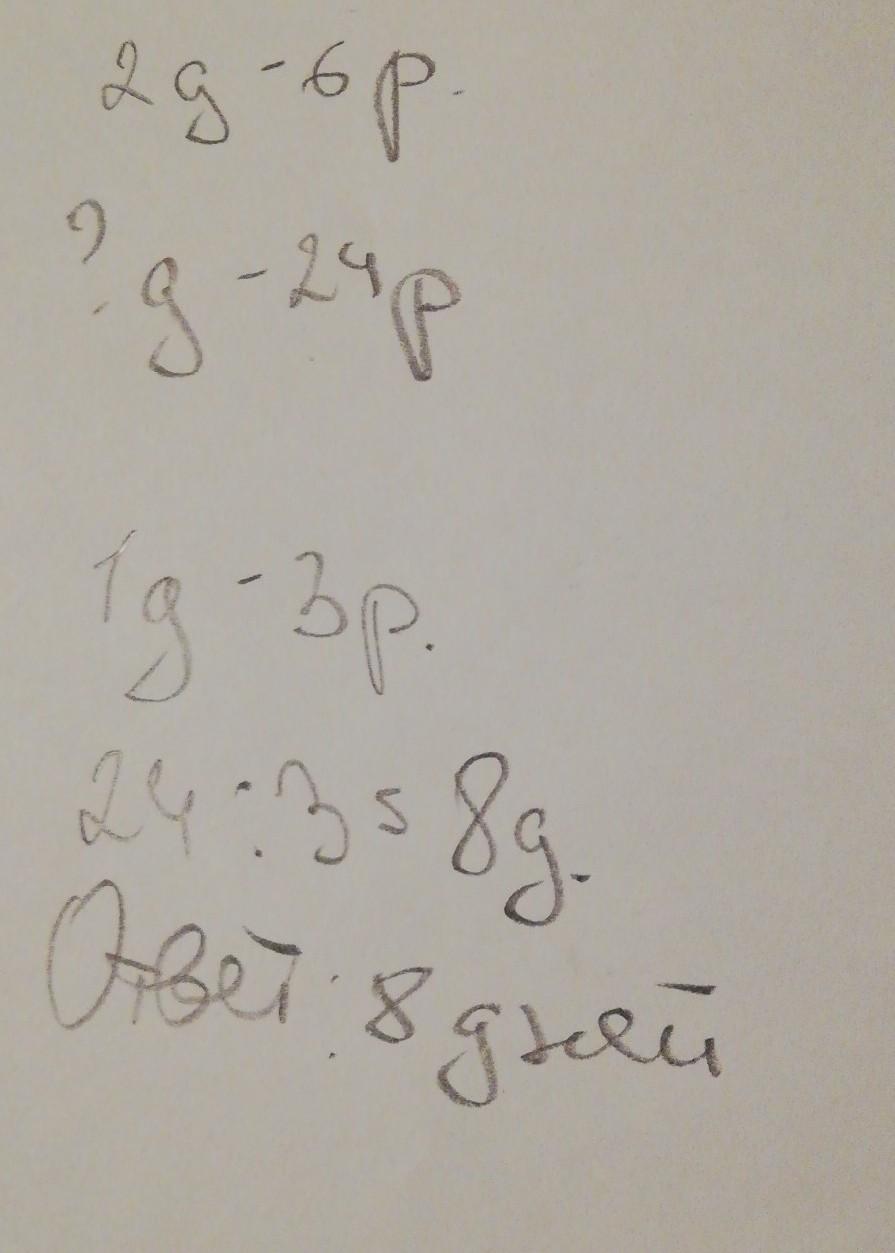 2д - 6 р.
? д - 24 р
1д - 3 р.
24 : 3 = 8д.
Ответ: 8 дней